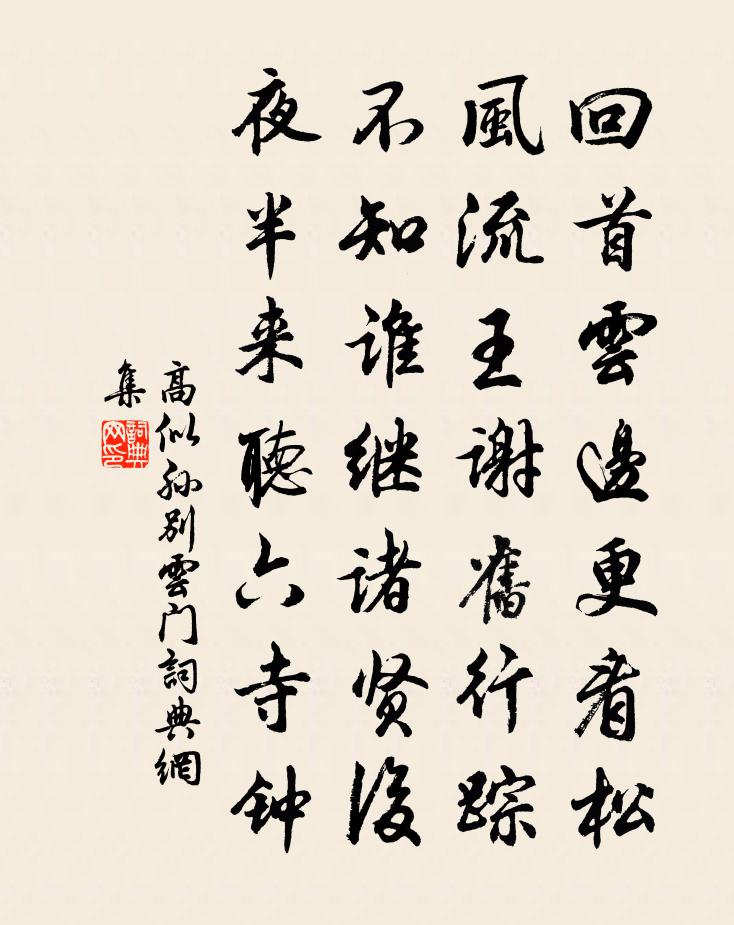 回首雲邊更看松
風流王谢舊行踪
不知谁继诸贤後
夜半来聽六寺钟
高似孙别雲门詞典網
集
詞典
网印